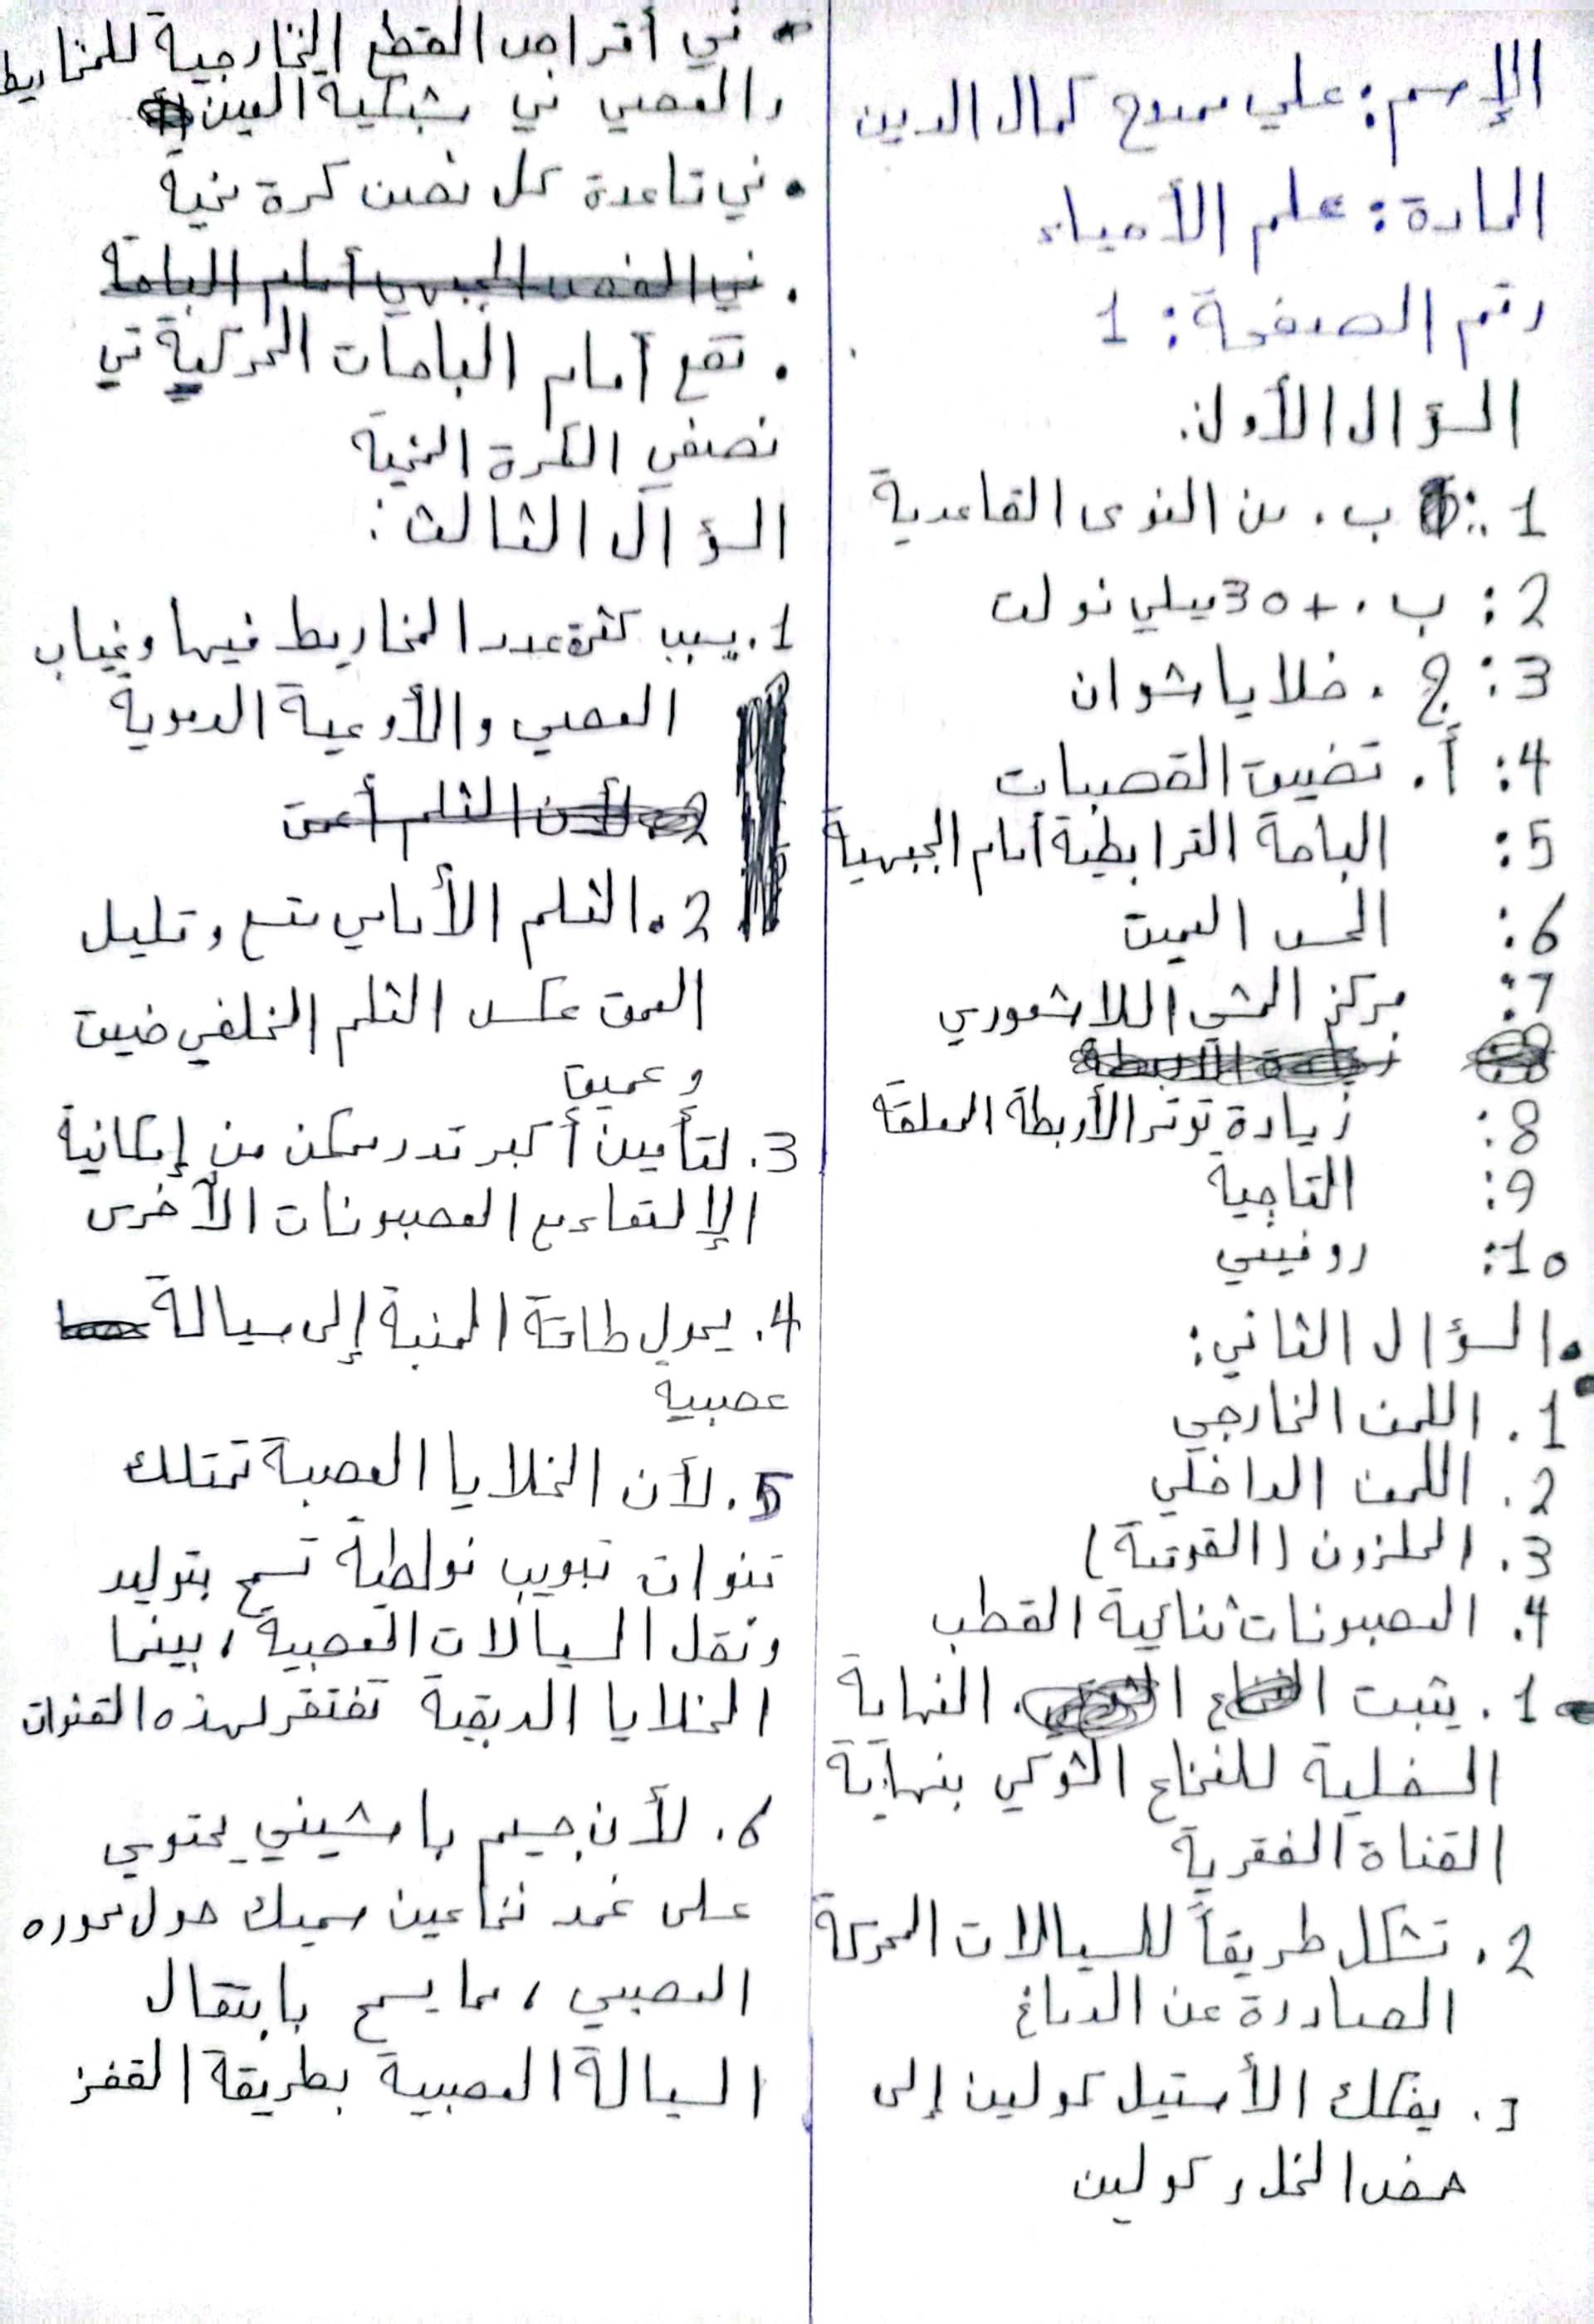 الإسم: علي ممدوح كمال الدين
المادة: علم الأحياء
رقم الصفحة: 1
السؤال الأول:
1: ب. من النوى القاعدية
2: ب. +30 ميلي فولت
3: ج. خلايا شوان
4: أ. تضييق القصبات
5: الباحة الترابطية أمام الجبهية
6: الحس العميق
7: مركز المشي اللاشعوري
8: زيادة توتر الأربطة المعلقة
9: التاجية
10: روفيني
• السؤال الثاني:
• 1. اللمف الخارجي
2. اللمف الداخلي
3. الحلزون (القوقعة)
4. العصبونات ثنائية القطب
• 1. يثبت النهاية
السفلية للنخاع الشوكي بنهاية
القناة الفقرية
2. تشكل طريقاً للسيالات المحركة
الصادرة عن الدماغ
3. يفكك الأستيل كولين إلى
حمض الخل و كولين
• في أقراص القطع الخارجية للمخاريط
والعصي في شبكية العين
• في قاعدة كل نصف كرة مخية
• في الفص الجبهي أمام الباحة
• تقع أمام الباحات الحركية في
نصفي الكرة المخية
السؤال الثالث:
1. بسبب كثرة عدد المخاريط فيها وغياب
العصي والأوعية الدموية
2. لأن الثلم أعمق
2. الثلم الأمامي متسع وقليل
العمق عكس الثلم الخلفي ضيق
وعميق
3. لتأمين أكبر قدر ممكن من إمكانية
الإلتقاء مع العصبونات الأخرى
4. يحول طاقة المنبه إلى سيالة
عصبية
5. لأن الخلايا العصبة تمتلك
قنوات تبويب فولطية تسمح بتوليد
ونقل السيالات العصبية، بينما
الخلايا الدبقية تفتقر لهذه القنوات
6. لأن جسيم باشيني يحتوي
على غمد نخاعين سميك حول محوره
العصبي، مما يسمح بانتقال
السيالة العصبية بطريقة القفز